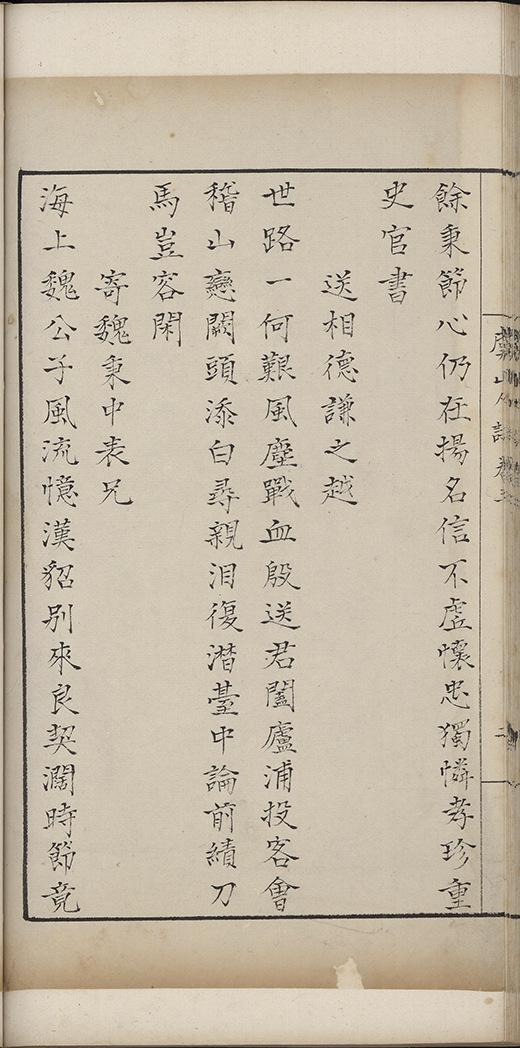 虞山人詩卷三
二
餘秉節心仍在揚名信不虛懷忠獨憐孝珍重
史官書
送相德謙之越
世路一何艱風塵戰血殷送君闔廬浦投客會
稽山戀闕頭添白尋親泪復潜臺中論前績刀
馬豈容閑
寄魏秉中表兄
海上魏公子風流憶漢貂别來良契濶時節竟